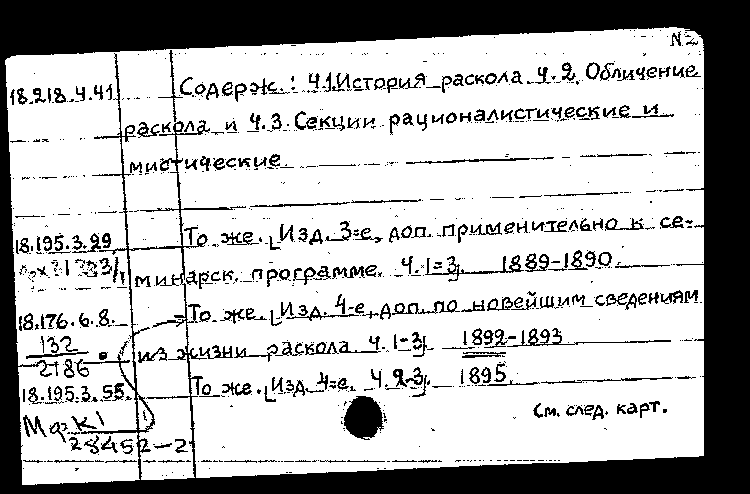 N2
18.218.4.41 Содерж.: Ч.1.История раскола. Ч.2. Обличение
раскола и Ч.3. Секции рационалистические и
мистические.
18.195.3.99. То же. Изд. 3=е, доп. применительно к се-
минарск. программе. Ч.1=3. 1889-1890.
18.176.6.8. То же. Изд. 4-е, доп. по новейшим сведениям
132
2186 из жизни раскола. Ч.1-3. 1892-1893
18.195.3.55. То же. Изд. 4=е. Ч.2-3. 1895.
См. след. карт.
28452-2